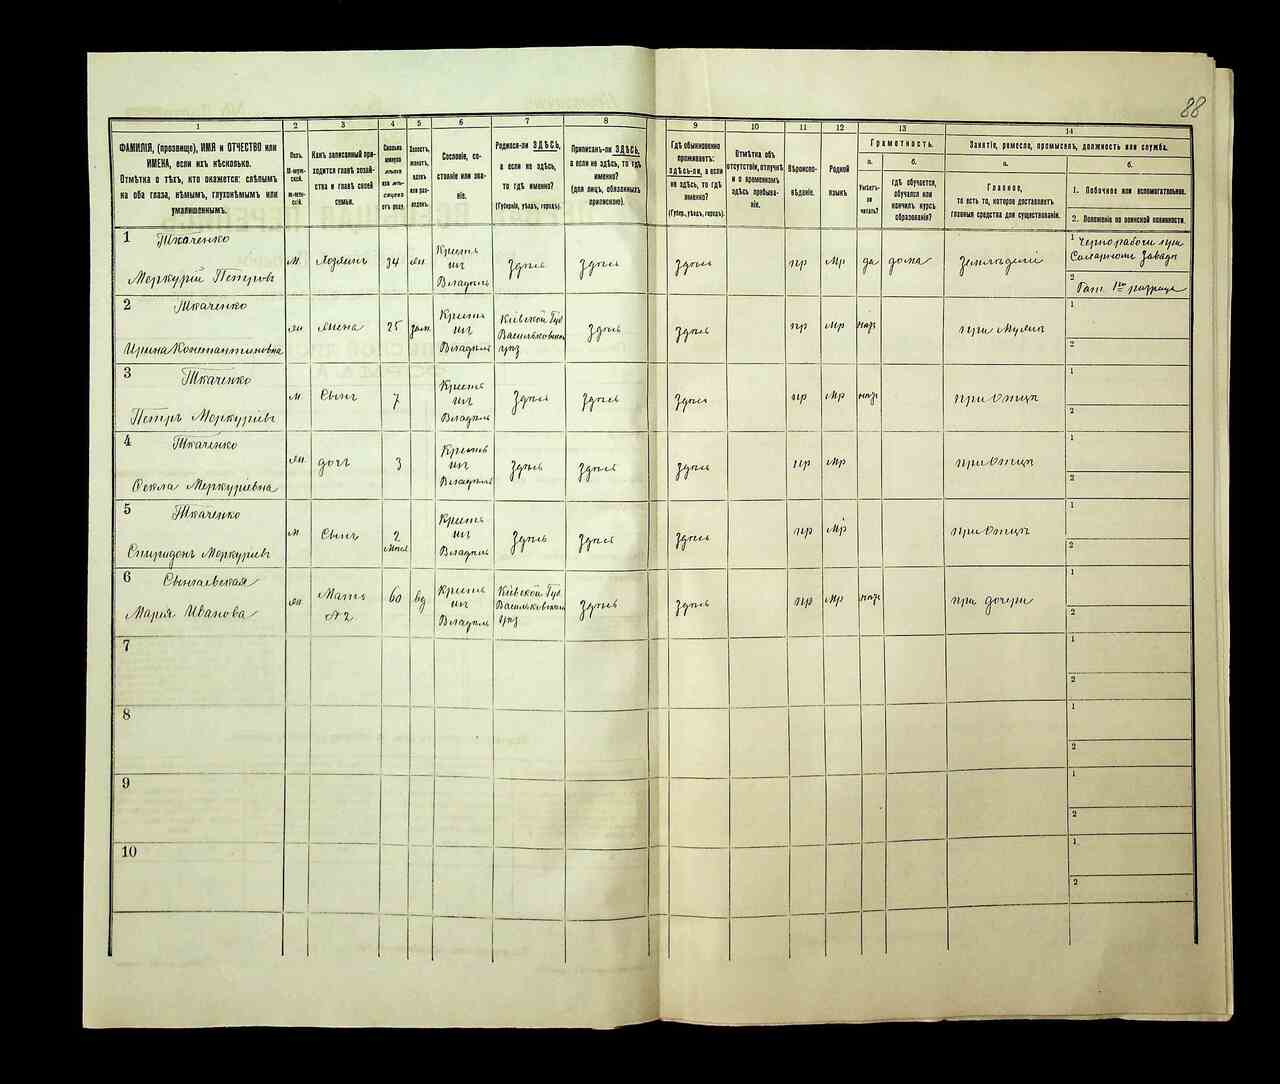 88
1 2 3 4 5 6 7 8 9 10 11 12 13 14
ФАМИЛІЯ, (прозвище), ИМЯ и ОТЧЕСТВО или
ИМЕНА, если ихъ нѣсколько.
Отмѣтка о тѣхъ, кто окажется: слѣпымъ
на оба глаза, нѣмымъ, глухонѣмымъ или
умалишеннымъ.
Полъ.
М-муж-
ской.
Ж-жен-
скій.
Какъ записанный при-
ходится главѣ хозяй-
ства и главѣ своей
семьи.
Сколько
минуло
лѣтъ
или мѣ-
сяцевъ
отъ роду.
Холостъ,
женатъ,
вдовъ
или раз-
веденъ.
Сословіе, со-
стояніе или зва-
ніе.
Родился-ли ЗДѢСЬ,
а если не здѣсь,
то гдѣ именно?
(Губернія, уѣздъ, городъ).
Приписанъ-ли ЗДѢСЬ,
а если не здѣсь, то гдѣ
именно?
(для лицъ, обязанныхъ
припискою).
Гдѣ обыкновенно
проживаетъ:
здѣсь-ли, а если
не здѣсь, то гдѣ
именно?
(Губер., уѣздъ, городъ).
Отмѣтка объ
отсутствіи, отлучкѣ
и о временномъ
здѣсь пребыва-
ніи.
Вѣроиспо-
вѣданіе.
Родной
языкъ
Грамотность.
а.
Умѣетъ-
ли
читать?
б.
гдѣ обучается,
обучался или
кончилъ курсъ
образованія?
Занятіе, ремесло, промыселъ, должность или служба.
а.
Главное,
то есть то, которое доставляетъ
главныя средства для существованія.
б.
1. Побочное или вспомогательное.
2. Положеніе по воинской повинности.
1 Ткаченко
Меркурій Петровъ
м Хозяинъ 34 жн Крестья
нинъ
Владѣль здѣсь здѣсь здѣсь пр мр да дома Земледѣліе
1 Чернорабочій при
Сахарномъ Заводѣ
2 Рат. 1го разряда
2 Ткаченко
Ирина Константиновна
жн жена 25 зам Кіевской Губ
Васильковскаго
уѣз здѣсь здѣсь пр мр нѣтъ при мужѣ
1
2
3 Ткаченко
Петръ Меркуріевъ
м Сынъ 7 здѣсь здѣсь здѣсь пр мр нѣтъ при Отцѣ
1
2
4 Ткаченко
Ѳекла Меркуріевна
жн дочь 3 здѣсь здѣсь здѣсь пр мр при Отцѣ
1
2
5 Ткаченко
Спиридонъ Меркуріевъ
м Сынъ 2 здѣсь здѣсь здѣсь пр мр при Отцѣ
1
2
6
Марія Иванова
жн Мать
№2 60 вд Кіевской Губ
Васильковскаго
уѣз здѣсь здѣсь пр мр нѣтъ при дочери
1
2
7
1
2
8
1
2
9
1
2
10
1
2